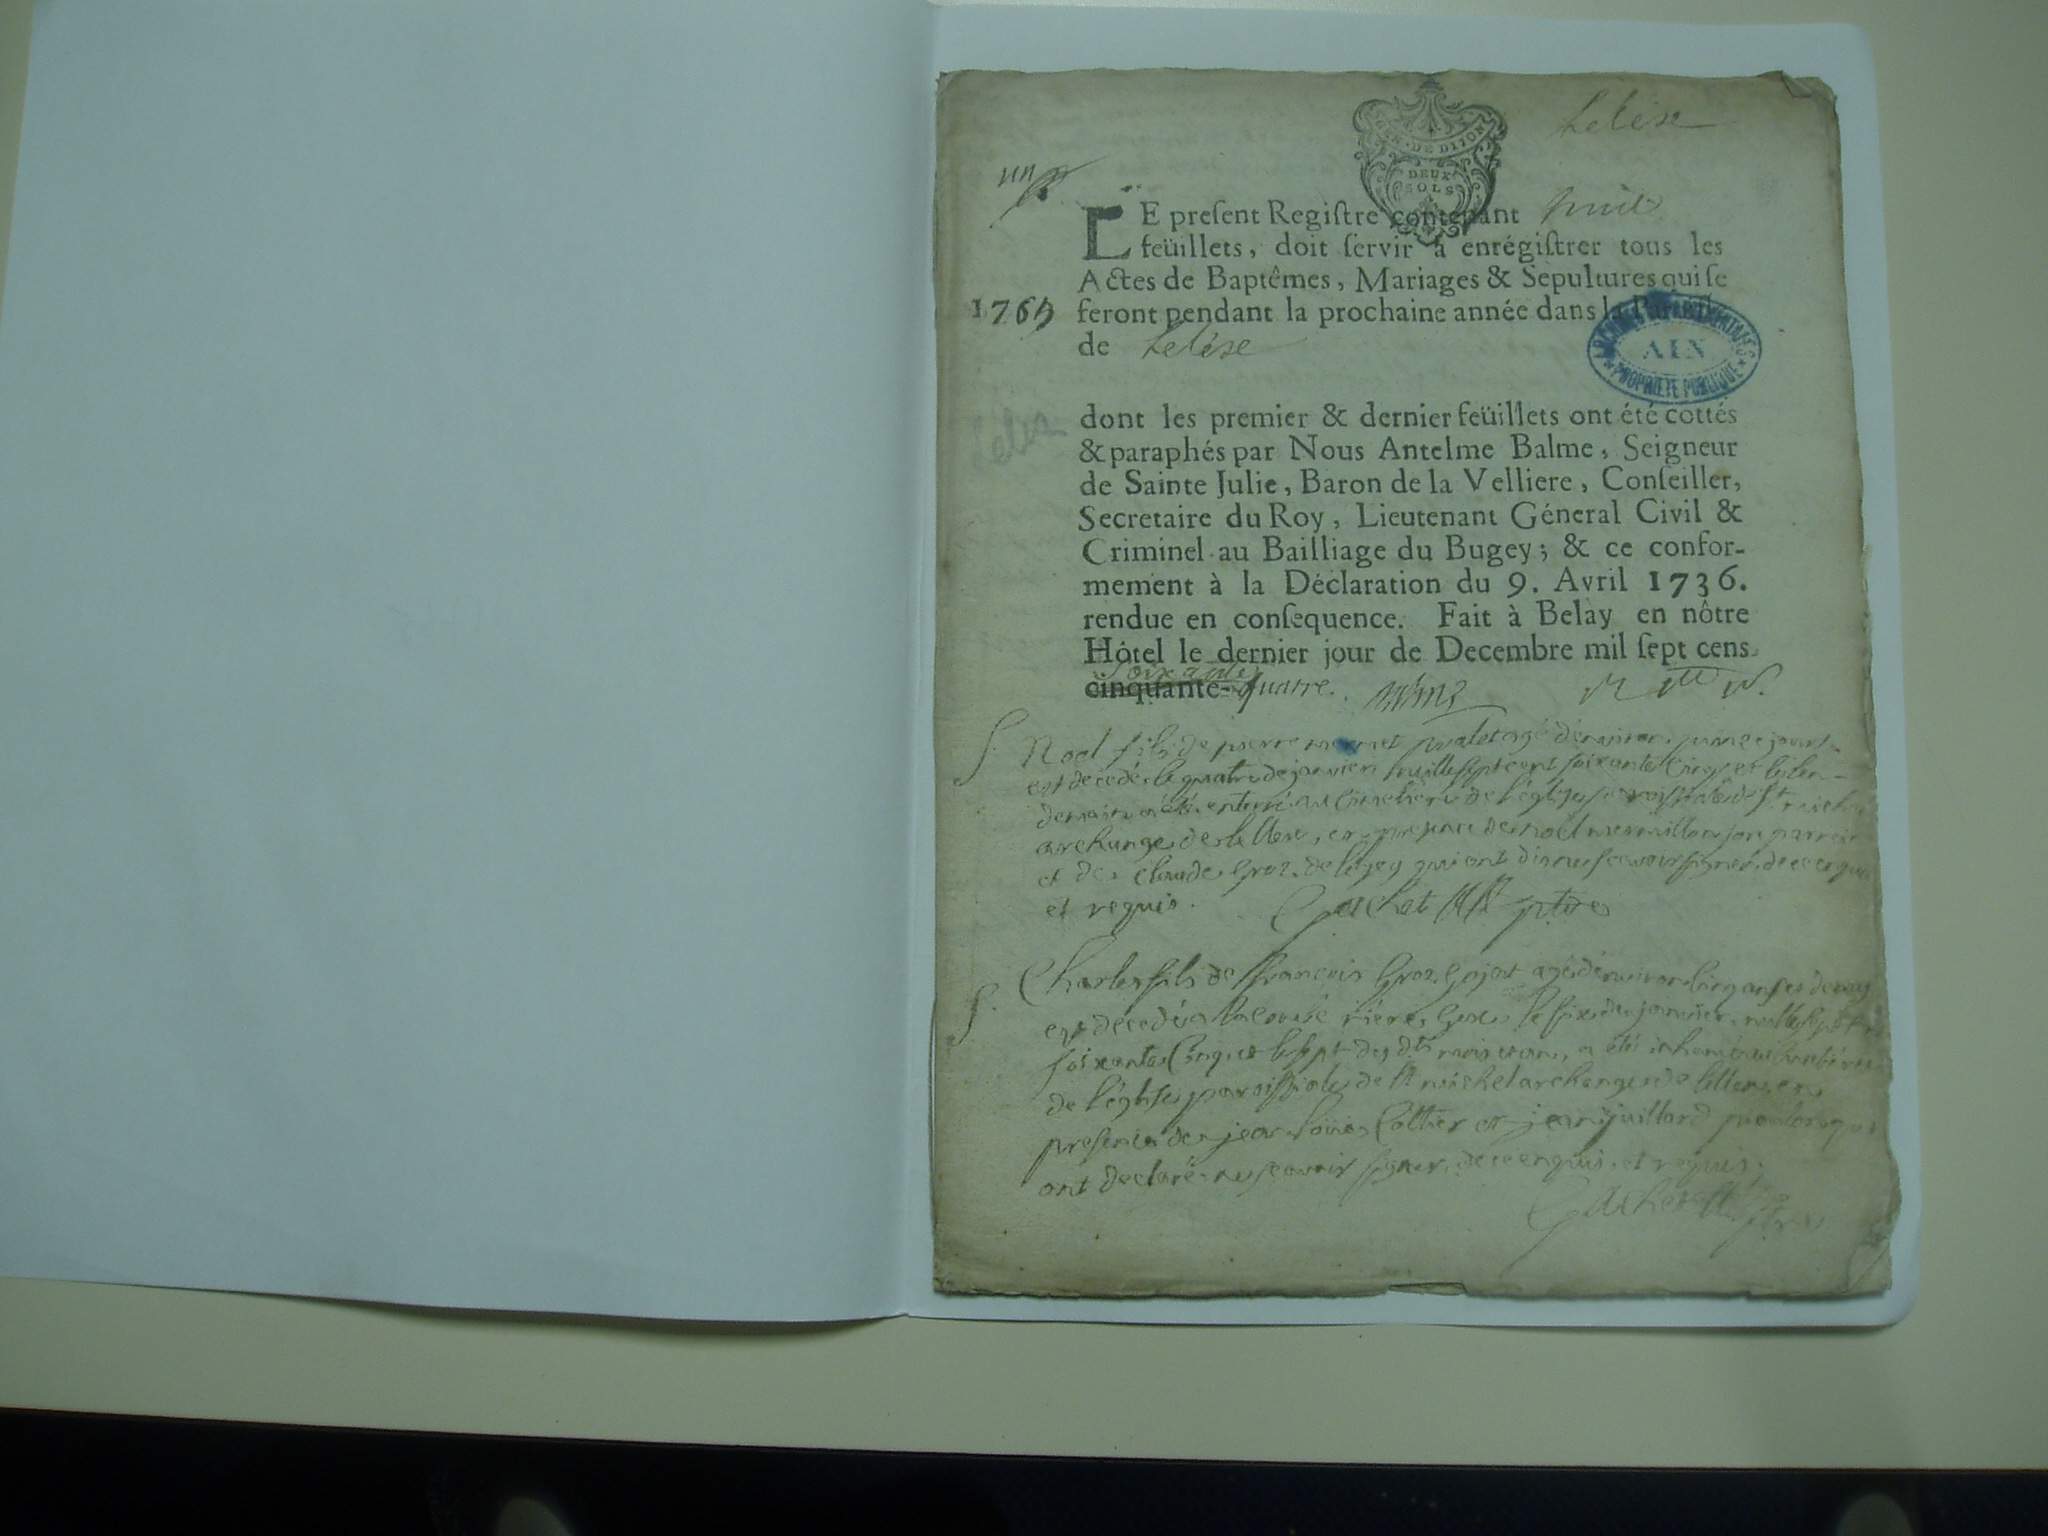 GEN · DE DIJON
DEUX
SOLS
Lelex
un
LE preſent Regiſtre contenant huit
feüillets, doit ſervir à enrégiſtrer tous les
Actes de Baptêmes, Mariages & Sepultures qui ſe
1765 feront pendant la prochaine année dans la
de Lelex
ARCHIVES DEPARTEMENTALES
AIN
PROPRIETE PUBLIQUE
Lelex
dont les premier & dernier feüillets ont été cottés
& paraphés par Nous Antelme Balme, Seigneur
de Sainte Julie, Baron de la Velliere, Conſeiller,
Secretaire du Roy, Lieutenant Géneral Civil &
Criminel au Bailliage du Bugey; & ce confor-
mement à la Déclaration du 9. Avril 1736.
rendue en conſequence. Fait à Belay en nôtre
Hôtel le dernier jour de Decembre mil ſept cens
soixante
cinquante-quatre.
S. Noel fils de pierre agé d'environ jours
est decedé le quatre de janvier mille sept cent soixante cinq et le len-
demain a été enterré au cimetiere de l'église paroissiale de St michel
archange de lellex, en presence de noel son parrain
et de Claude Groz qui ont dit ne scavoir signer de ce enquis
et requis. Gachet ptre
S. Charles fils de françois Groz agé d'environ cinq ans
est décédé a le six de janvier mille sept
soixante cinq et le sept des dts mois et an, a été inhumé au cimetiere
de l'église paroissiale de St michel archange de lellex en
presence de jean Cottier et jean juillard
ont declaré ne scavoir signer, de ce enquis, et requis.
Gachet ptre